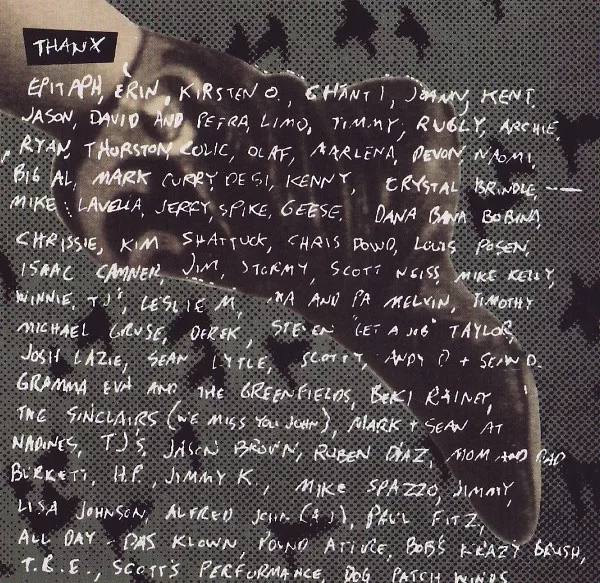 THANX
EPITAPH, ERIN, KIRSTEN O., CHANTI, JOANN, KENT,
JASON, DAVID AND PETRA, LIMO, TIMMY, RUGLY, ARCHIE,
RYAN, THURSTON COLIC, OLAF, MARLENA, DEVON, NAOMI,
BIG AL, MARK CURRY, DESI, KENNY, CRYSTAL BRINDLE —
MIKE LAVELLA, JERRY, SPIKE, GEESE, DANA BANA BOBINA,
CHRISSIE, KIM SHATTUCK, CHRIS DOWD, LOUIS POSEN,
ISAAC CAMNER, JIM, STORMY, SCOTT WEISS, MIKE KELLY,
WINNIE, TJ'S, LESLIE M, MA AND PA MELVIN, TIMOTHY
MICHAEL CRUSE, DEREK, STEVEN "GET A JOB" TAYLOR,
JOSH LAZIE, SEAN LYTLE, SCOTTY, ANDY P + SEAN D.
GRAMMA EVA AND THE GREENFIELDS, BEKI RAINEY,
THE SINCLAIRS (WE MISS YOU JOHN), MARK + SEAN AT
NADINES, TJ'S, JASON BROWN, RUBEN DIAZ, MOM AND DAD
BURKETT, H.P., JIMMY K., MIKE SPAZZO, JIMMY,
LISA JOHNSON, ALFRED JOHN (AJ), PAUL FITZ,
ALL DAY - DAS KLOWN, POUND BOB'S KRAZY BRUSH,
T.B.E., SCOTT'S PERFORMANCE, DOG PATCH WINDS